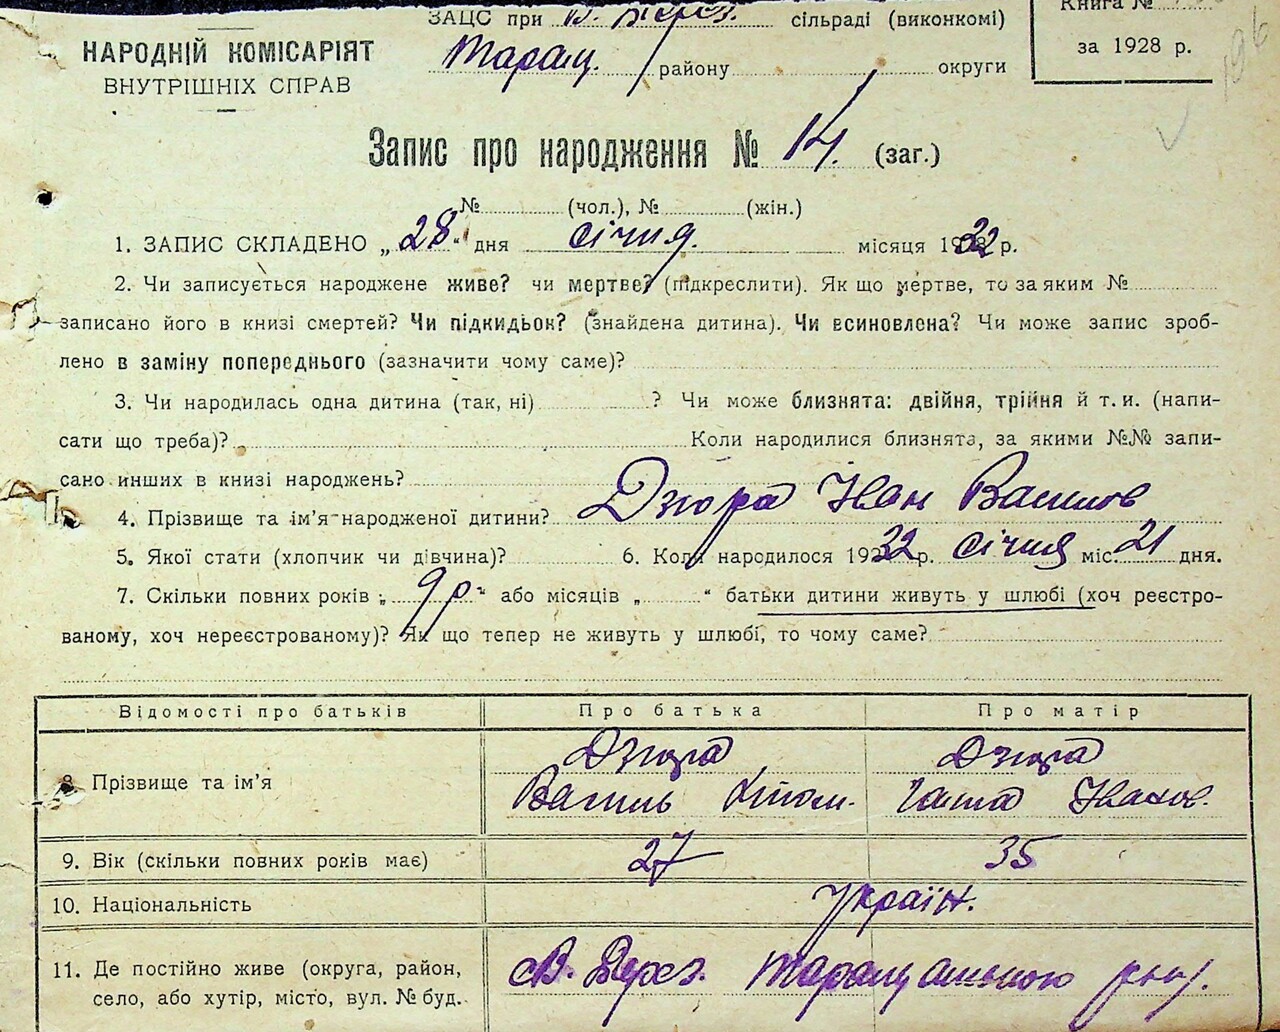 ЗАЦС при В. Берез. сільраді (виконкомі)
Таращ. району округи
Книга №
за 1928 р.
196
НАРОДНІЙ КОМІСАРІЯТ
ВНУТРІШНІХ СПРАВ
Запис про народження № 14. (заг.)
№ (чол.), № (жін.)
1. ЗАПИС СКЛАДЕНО „28“ дня січня. місяця 1932 р.
2. Чи записується народжене живе? чи мертве? (підкреслити). Як що мертве, то за яким №
записано його в книзі смертей? Чи підкидьок? (знайдена дитина). Чи всиновлена? Чи може запис зроб-
лено в заміну попереднього (зазначити чому саме)?
3. Чи народилась одна дитина (так, ні) ? Чи може близнята: двійня, трійня й т. и. (напи-
сати що треба)? Коли народилися близнята, за якими №№ запи-
сано инших в книзі народжень?
4. Прізвище та ім’я народженої дитини? Дзюра Іван Васильов
5. Якої стати (хлопчик чи дівчина)? 6. Коли народилося 1932 р. січня міс. 21 дня.
7. Скільки повних років „9 р“ або місяців „ “ батьки дитини живуть у шлюбі (хоч реєстро-
ваному, хоч нереєстрованому)? Як що тепер не живуть у шлюбі, то чому саме?
Відомості про батьків Про батька Про матір
8 Прізвище та ім’я Дзюра Дзюра
Василь Ганна Іванов.
9. Вік (скільки повних років має) 27 35
10. Національність Україн.
11. Де постійно живе (округа, район, В. Берез. Таращанською району.
село, або хутір, місто, вул. № буд.